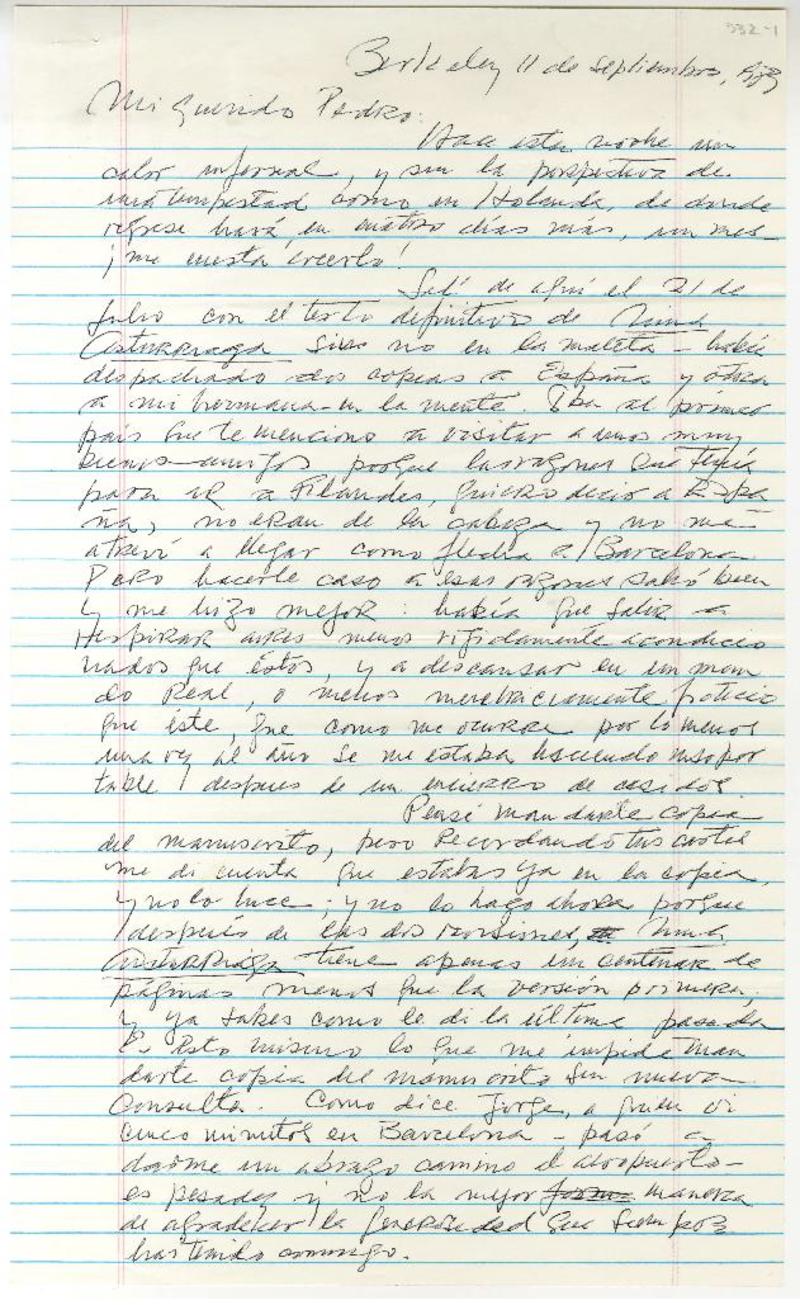 332-1
Berkeley 11 de septiembre,
Mi querido Pedro:
Hace esta noche un
calor infernal, y sin la perspectiva de
una tempestad como en Holanda, de donde
regresé hará, en cuatro días más, un mes
¡me cuesta creerlo!
Salí de aquí el 21 de
Julio con el texto definitivo de
Asturriaga sino no en la maleta – había
despachado dos copias a España y otra
a mi hermana – en la mente. Iba al primer
país que te menciono a visitar a unos muy
buenos amigos porque las razones que tenía
para ir a Flandes, quiero decir a Espa
ña, no eran de la cabeza y no me
atreví a llegar como flecha a Barcelona
Pero hacerle caso a esas razones salió bien
y me hizo mejor: había que salir a
respirar aires menos rígidamente acondicio
nados que éstos, y a descansar en un mun
do real, o menos meretriciamente ficticio
que éste, que como me ocurre por lo menos
una vez al año se me estaba haciendo insopor
table después de un encierro de
Pensé mandarte copia
del manuscrito, pero recordando tus cartas
me di cuenta que estabas ya en la copia,
y no lo hice; y no lo hago ahora porque
después de las dos versiones,
Asturriaga tiene apenas un centenar de
páginas menos que la versión primera,
y ya sabes como le di la última pasada
Es esto mismo lo que me impide man
darte copia del manuscrito sin nueva
consulta. Como dice Jorge, a quien vi
cinco minutos en Barcelona – pasó a
darme un abrazo camino al aeropuerto –
es pesadez y no la mejor manera
de agradecer la generosidad que siempre
has tenido conmigo.